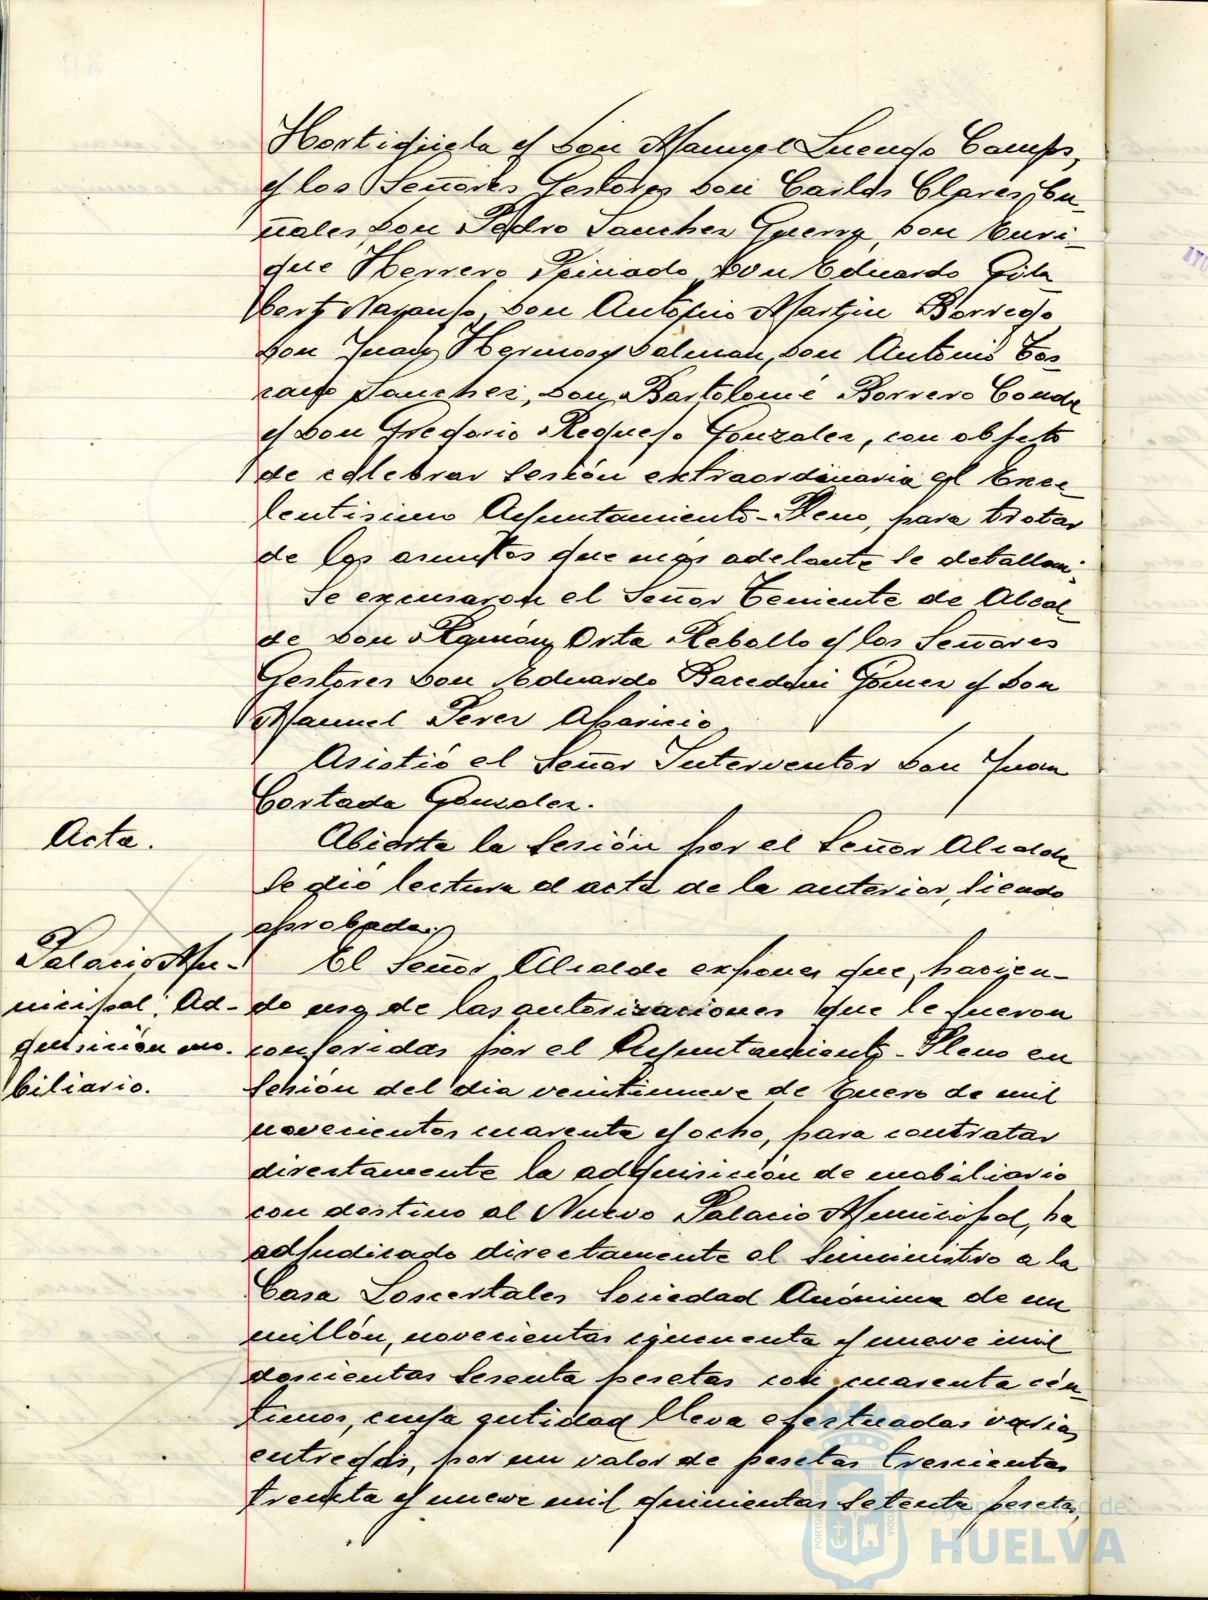 Hortigüela y Don Manuel Luengo Camps,
y los Señores Gestores Don Carlos Clares Cu-
ñales, Don Pedro Sanchez Guerra, Don Enri-
que Herrero Peinado, Don Eduardo Gila
bert Naranjo, Don Antonio Martin Borrego,
Don Juan Hermosy Dolman, Don Antonio Tos-
cano Sanchez, Don Bartolomé Borrero Conde
y Don Gregorio Requejo Gonzalez, con objeto
de celebrar sesión extraordinaria el Exce-
lentisimo Ayuntamiento-Pleno, para tratar
de los asuntos que mas adelante se detallan.
Se excusaron el Señor Teniente de Alcal-
de Don Ramón Orta Rebollo y los Señores
Gestores Don Eduardo Gómez y Don
Manuel Perez Aparicio.
Asistió el Señor Interventor Don Juan
Cortada Gonzalez.
Acta.
Abierta la sesión por el Señor Alcalde
se dió lectura al acta de la anterior, siendo
aprobada.
Palacio Mu-
nicipal: Ad-
quisición mo-
biliario.
El Señor Alcalde expone que, hacien-
do uso de las autorizaciones que le fueron
conferidas por el Ayuntamiento-Pleno en
sesión del dia veintinueve de Enero de mil
novecientos cuarenta y ocho, para contratar
directamente la adquisición de mobiliario
con destino al Nuevo Palacio Municipal, ha
adjudicado directamente el suministro a la
Casa Loscertales Sociedad Anónima de un
millón, novecientas cincuenta y nueve mil
doscientas sesenta pesetas con cuarenta cén-
timos, cuya entidad lleva efectuadas varias
entregas, por un valor de pesetas trescientas
treinta y nueve mil quinientas setenta pesetas,
Ayuntamiento de
HUELVA